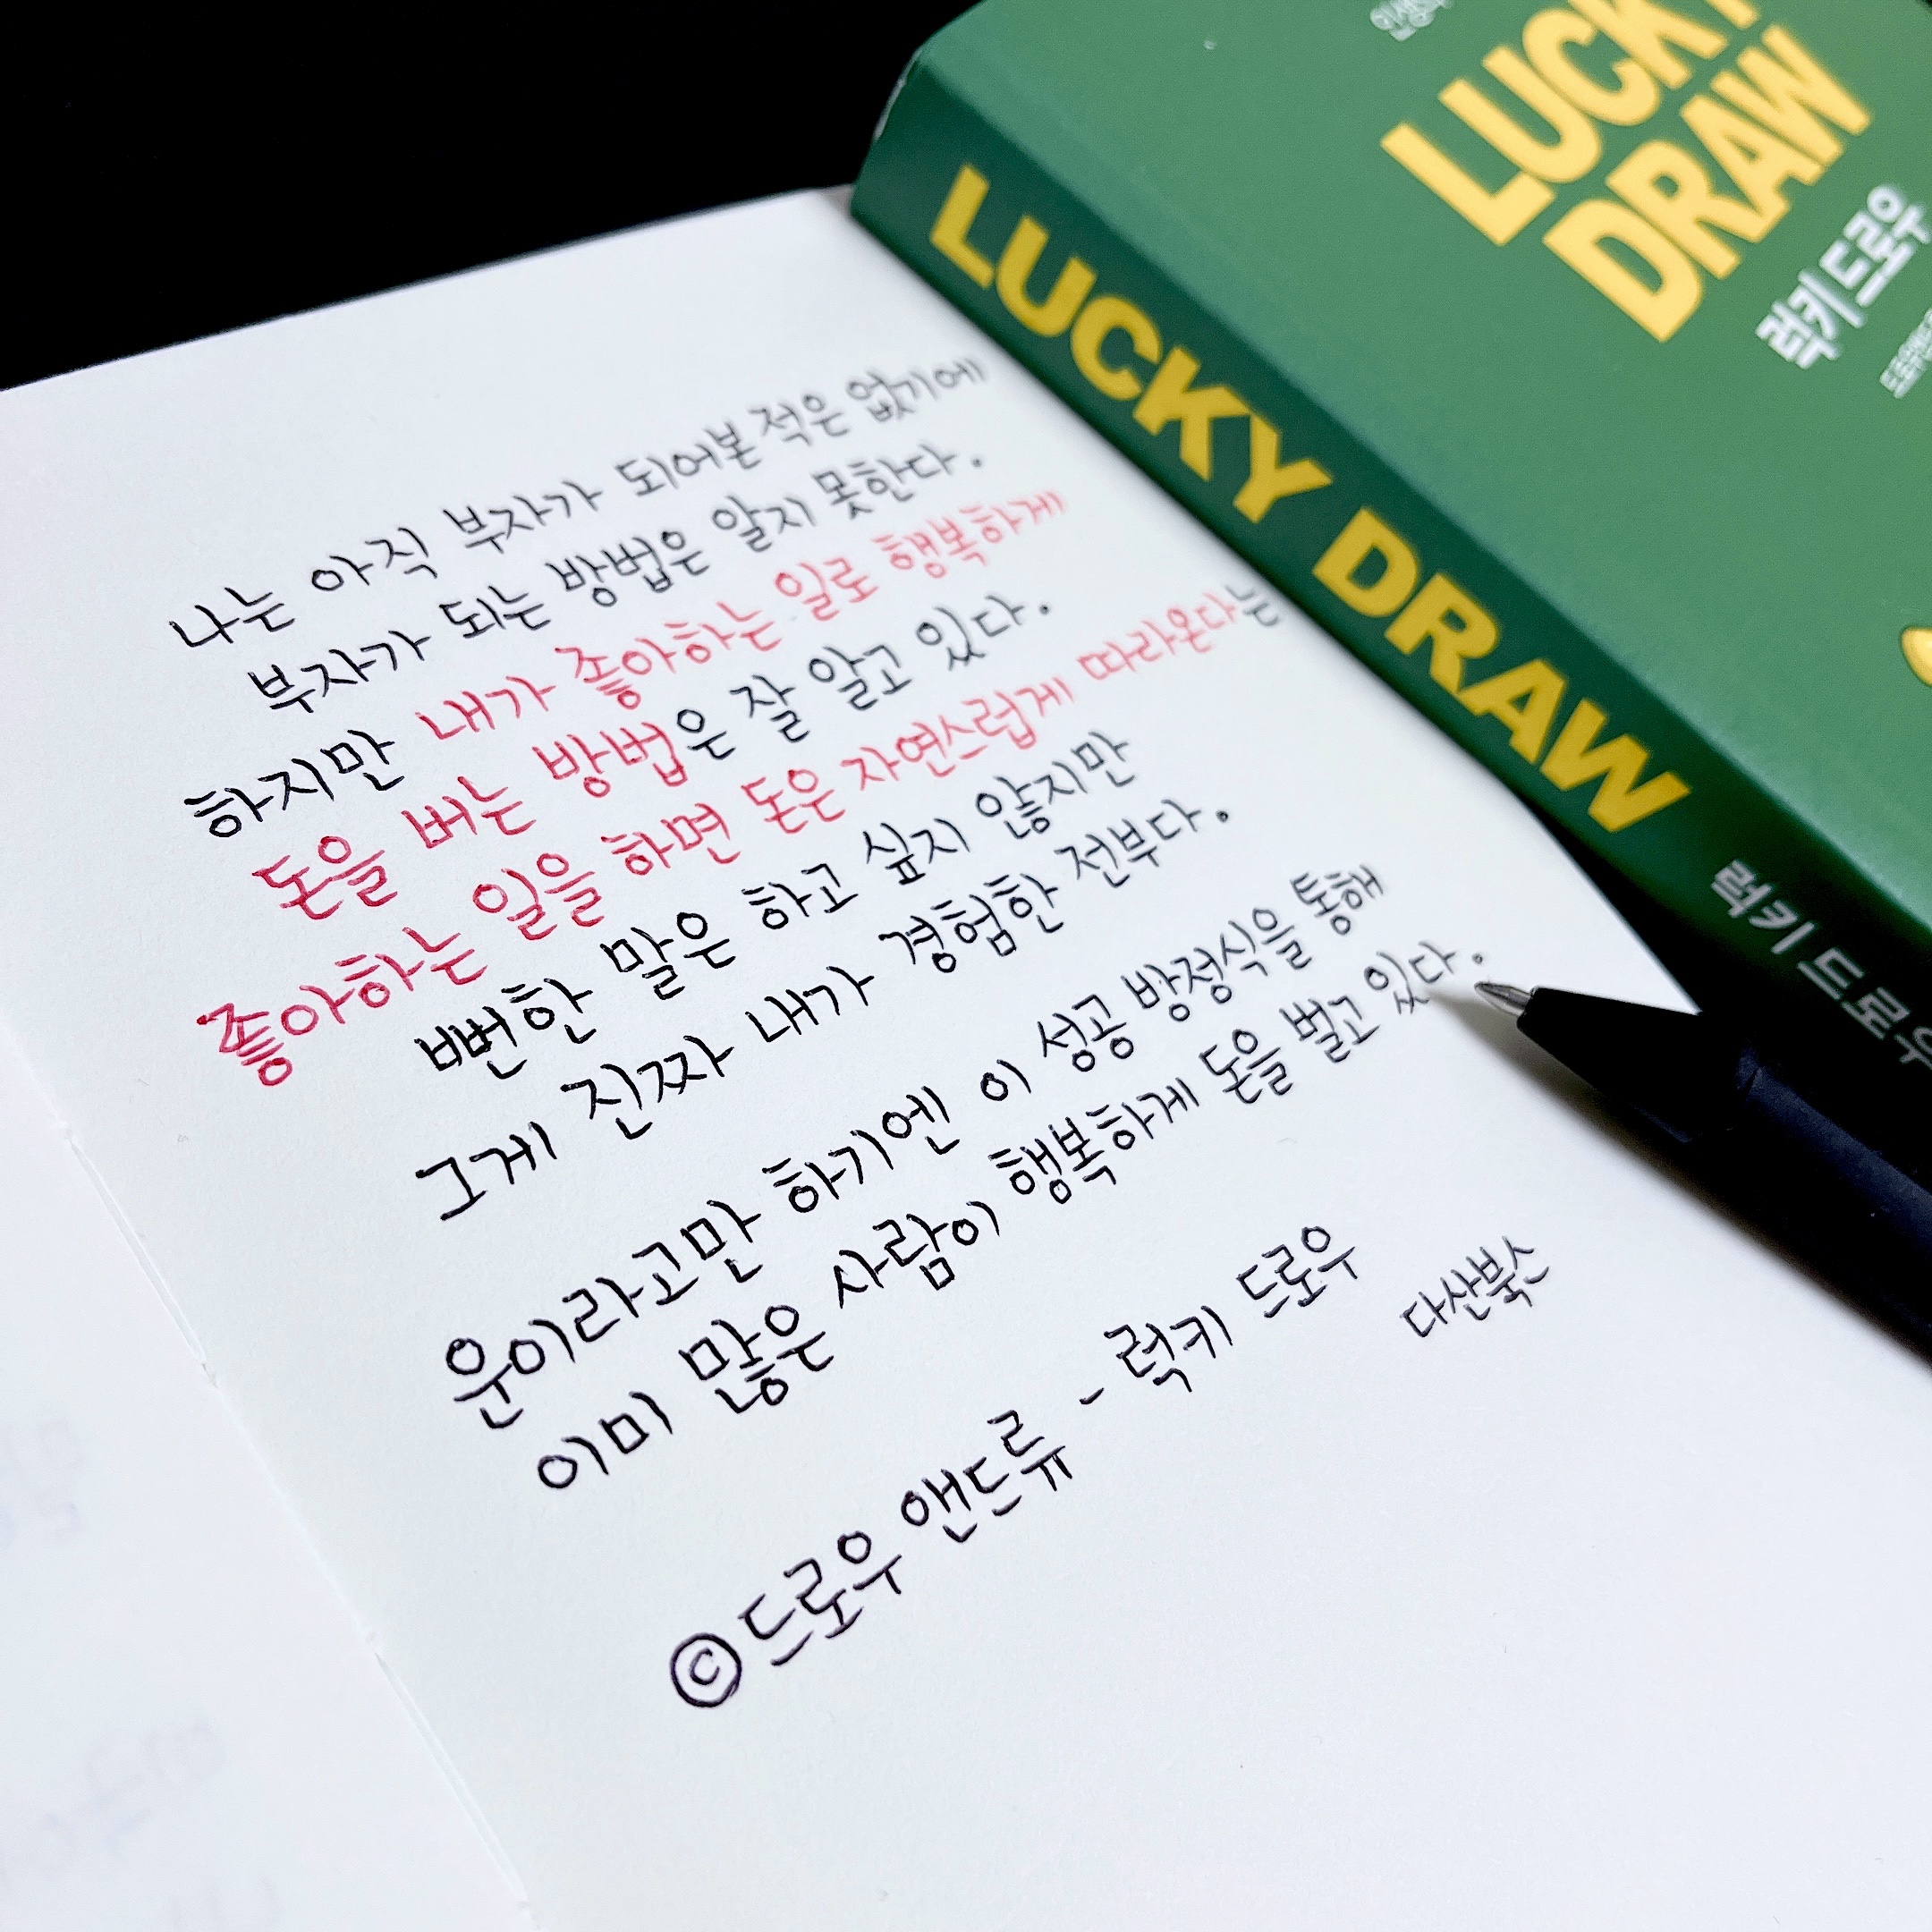 LUCKY
DRAW
럭키 드로우
LUCKY DRAW
럭키 드로우
나는 아직 부자가 되어본 적은 없기에
부자가 되는 방법은 알지 못한다.
하지만 내가 좋아하는 일로 행복하게
돈을 버는 방법은 잘 알고 있다.
좋아하는 일을 하면 돈은 자연스럽게 따라온다는
뻔한 말은 하고 싶지 않지만
그게 진짜 내가 경험한 전부다.
운이라고만 하기엔 이 성공 방정식을 통해
이미 많은 사람이 행복하게 돈을 벌고 있다.
©드로우 앤드류 - 럭키 드로우
다산북스